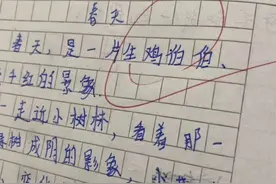 春天
春天，是一片生鸡伯伯、
千红的景象
走近小树林，看着那一
树成阴的影象，小